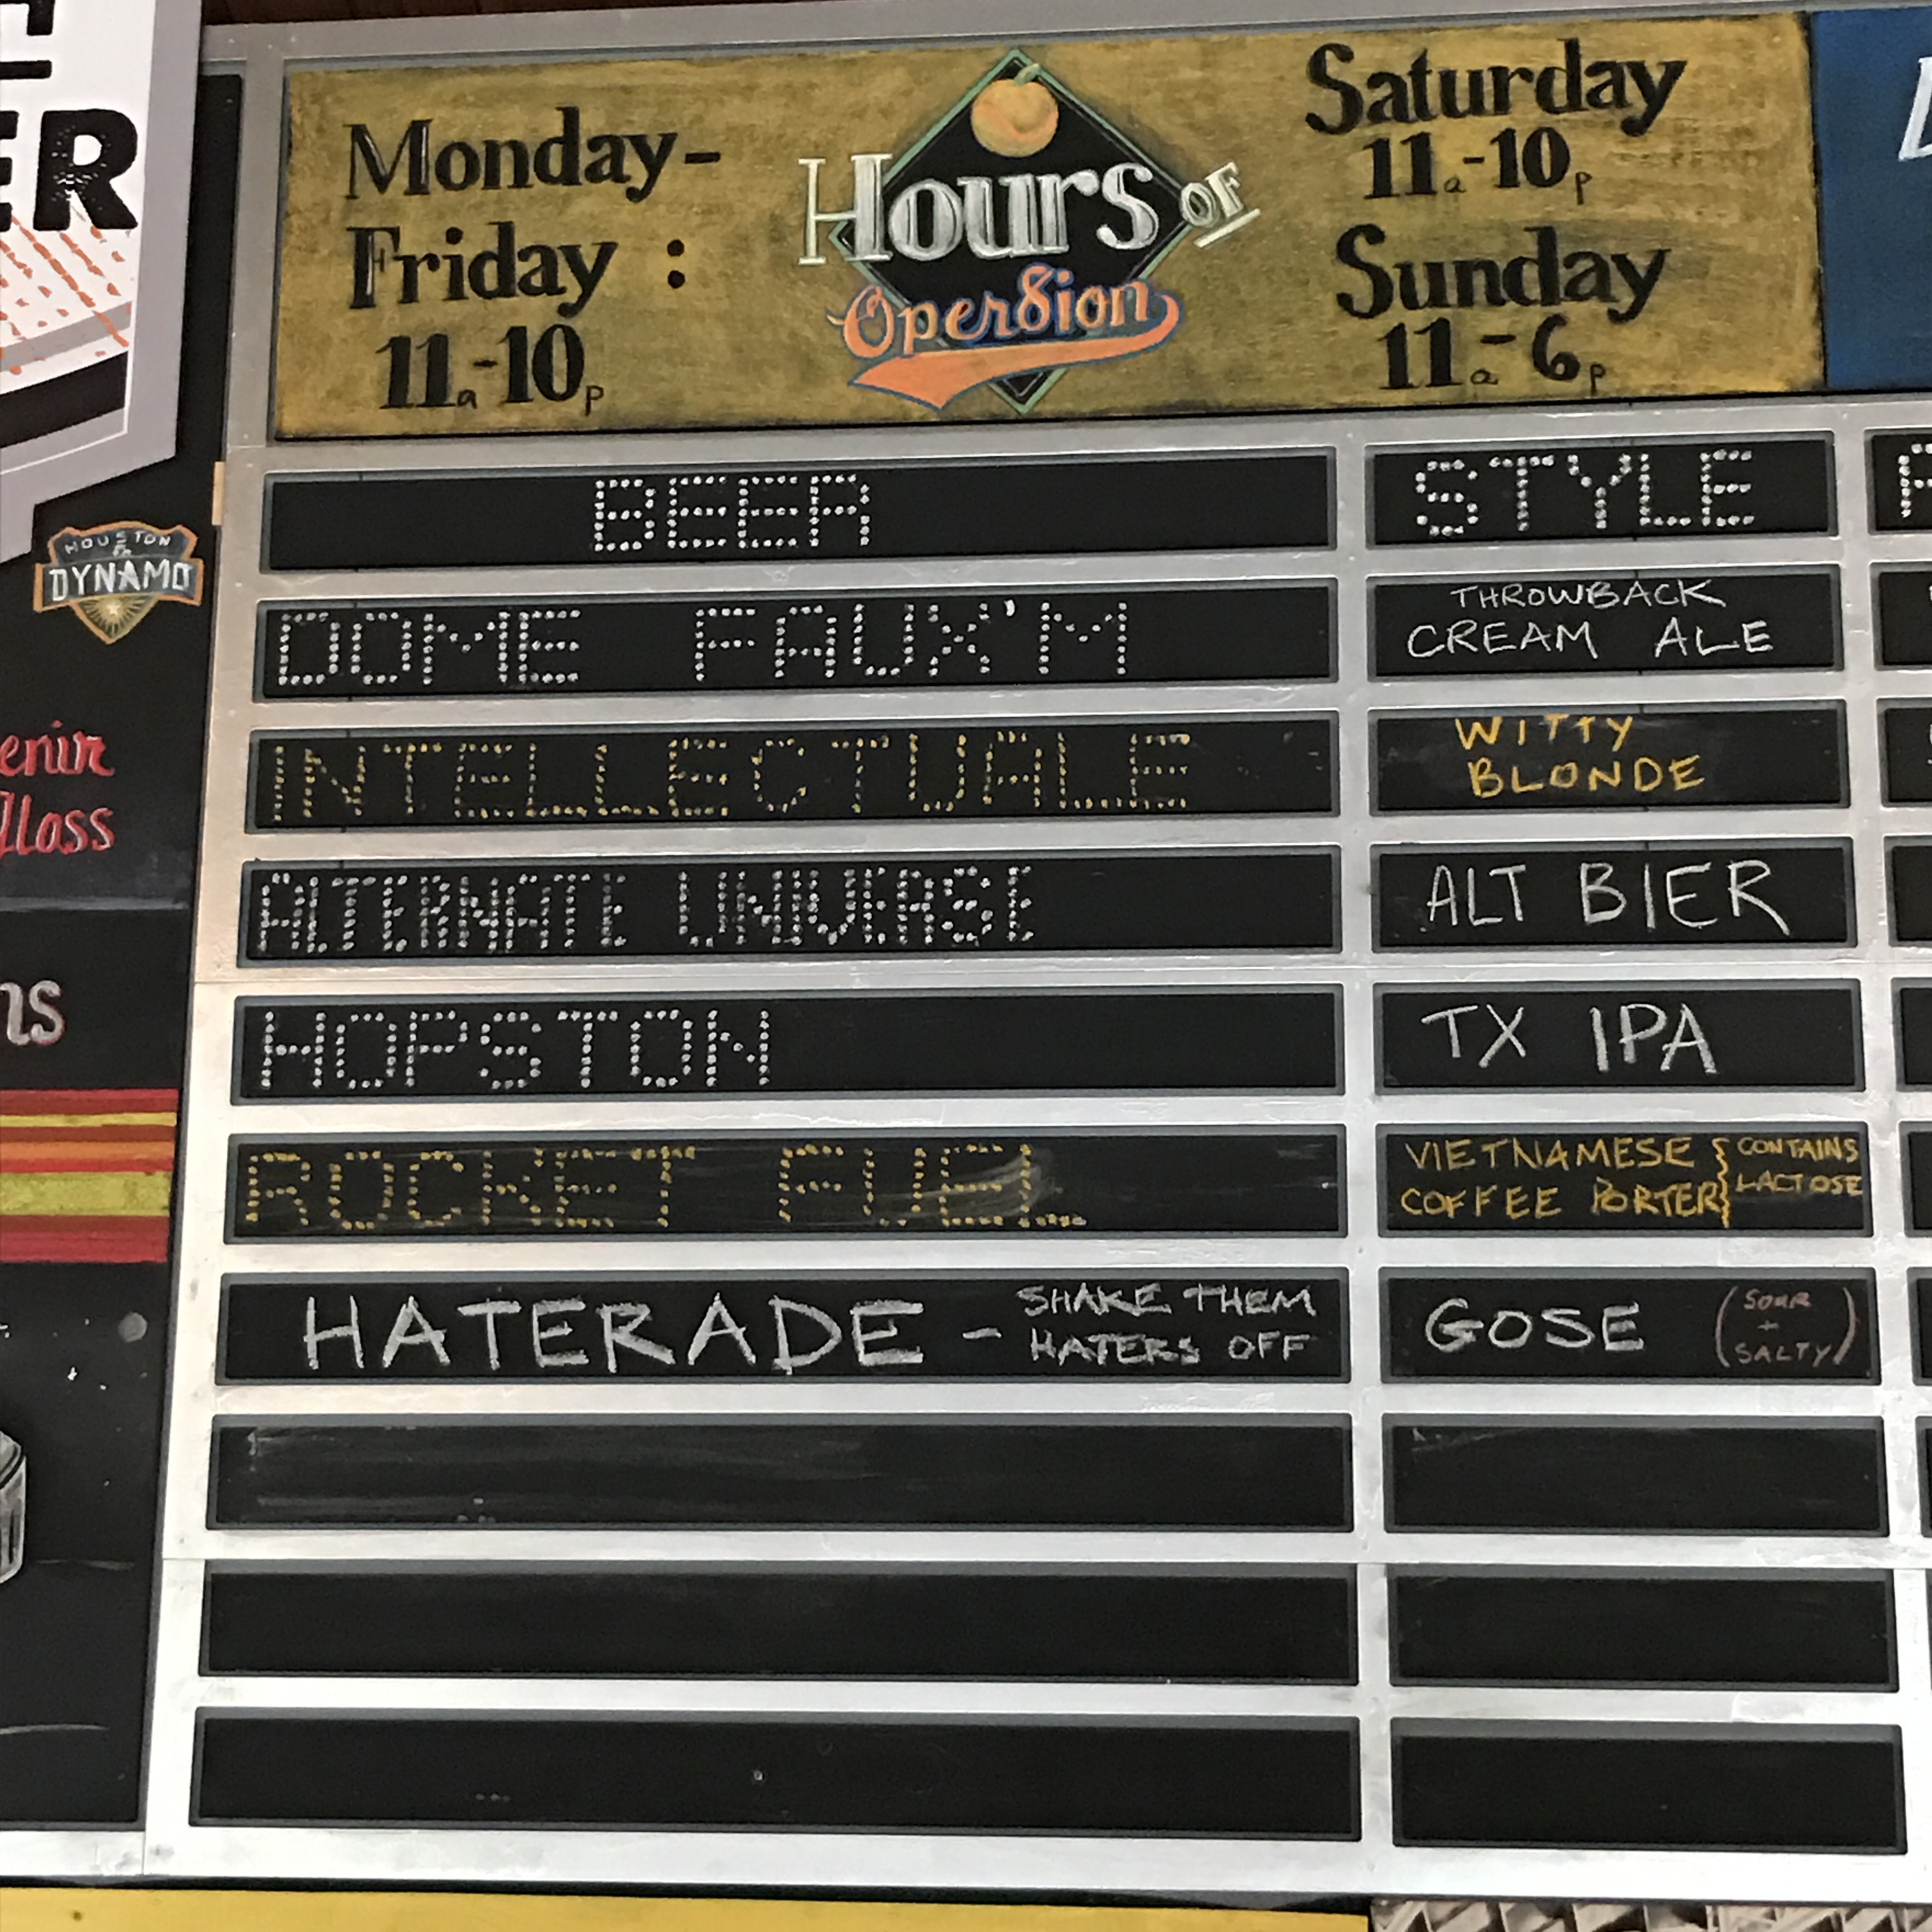 ER
Monday-
Friday :
11a-10p
Hours OF
Oper8ion
Saturday
11a-10p
Sunday
11a-6p
HOUSTON
DYNAMO
BEER STYLE
DOME FAUX'M THROWBACK
CREAM ALE
INTELLECTUALE WITTY
BLONDE
ALTERNATE UNIVERSE ALT BIER
HOPSTON TX IPA
ROCKET FUEL VIETNAMESE
COFFEE PORTER
CONTAINS
LACTOSE
HATERADE - SHAKE THEM
HATERS OFF
GOSE (SOUR
+
SALTY)
enir
Glass
ns